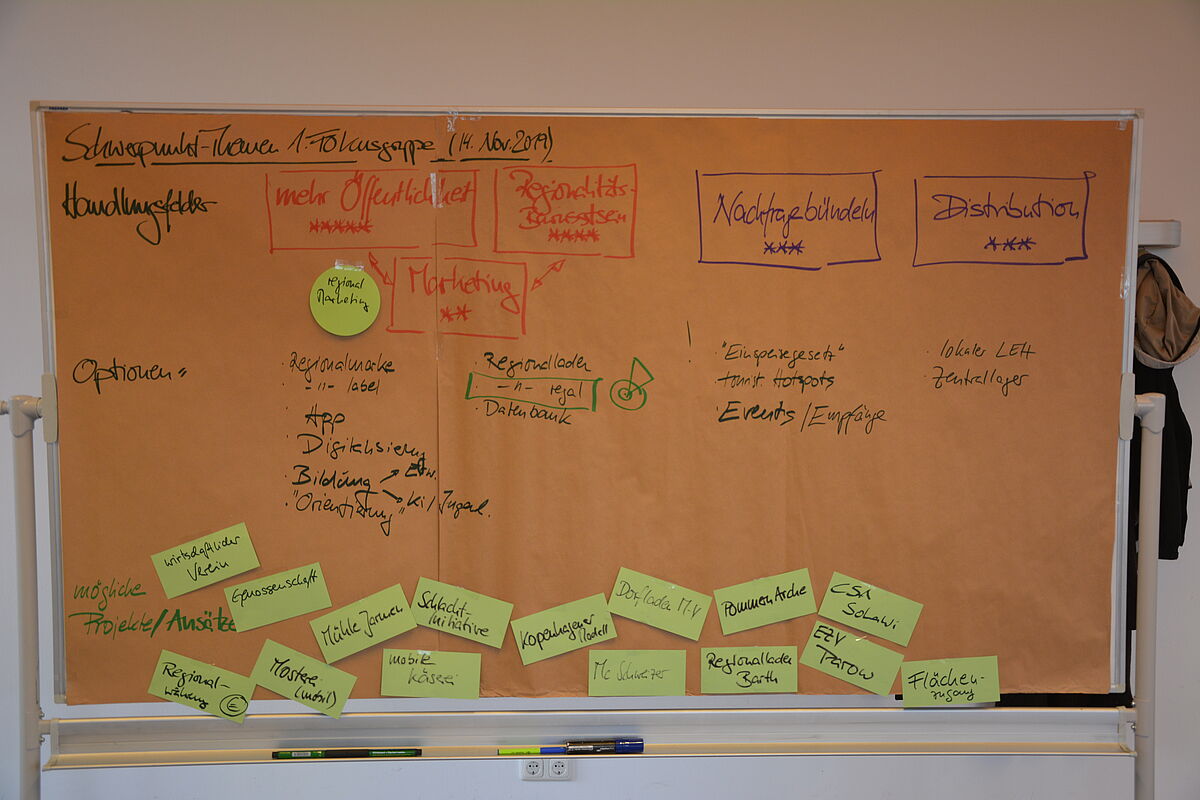 Schwerpunkt-Themen 1. Fokusgruppe (14. Nov. 2019)
Handlungsfelder
mehr Öffentlichkeit
*****
Regionalitäts-
Bewusstsein
****
Marketing
**
regional
Marketing
Nachfrage bündeln
***
Distribution
***
Optionen =
· Regionalmarke
· -"- label
· App
· Digitalisierung
· Bildung → Erw.
· "Orientierung" Ki/Jugend.
· Regionalladen
· -"- regal
· Datenbank
!
· "Einspeisegesetz"
· tourist. Hotspots
· Events /Empfänge
· lokaler LEH
· Zentrallager
mögliche
Projekte/Ansätze
wirtschaftlicher
Verein
Genossenschaft
Mühle Jarmen
Schlacht-
initiative
Kopenhagener
Modell
Dorfladen M-V
Pommern Arche
CSA
SoLaWi
Regional-
währung €
Mosterei
(mobil)
mobile
Käserei
Mc Schweizer
Regionalladen
Barth
EZV
Flächen-
zugang